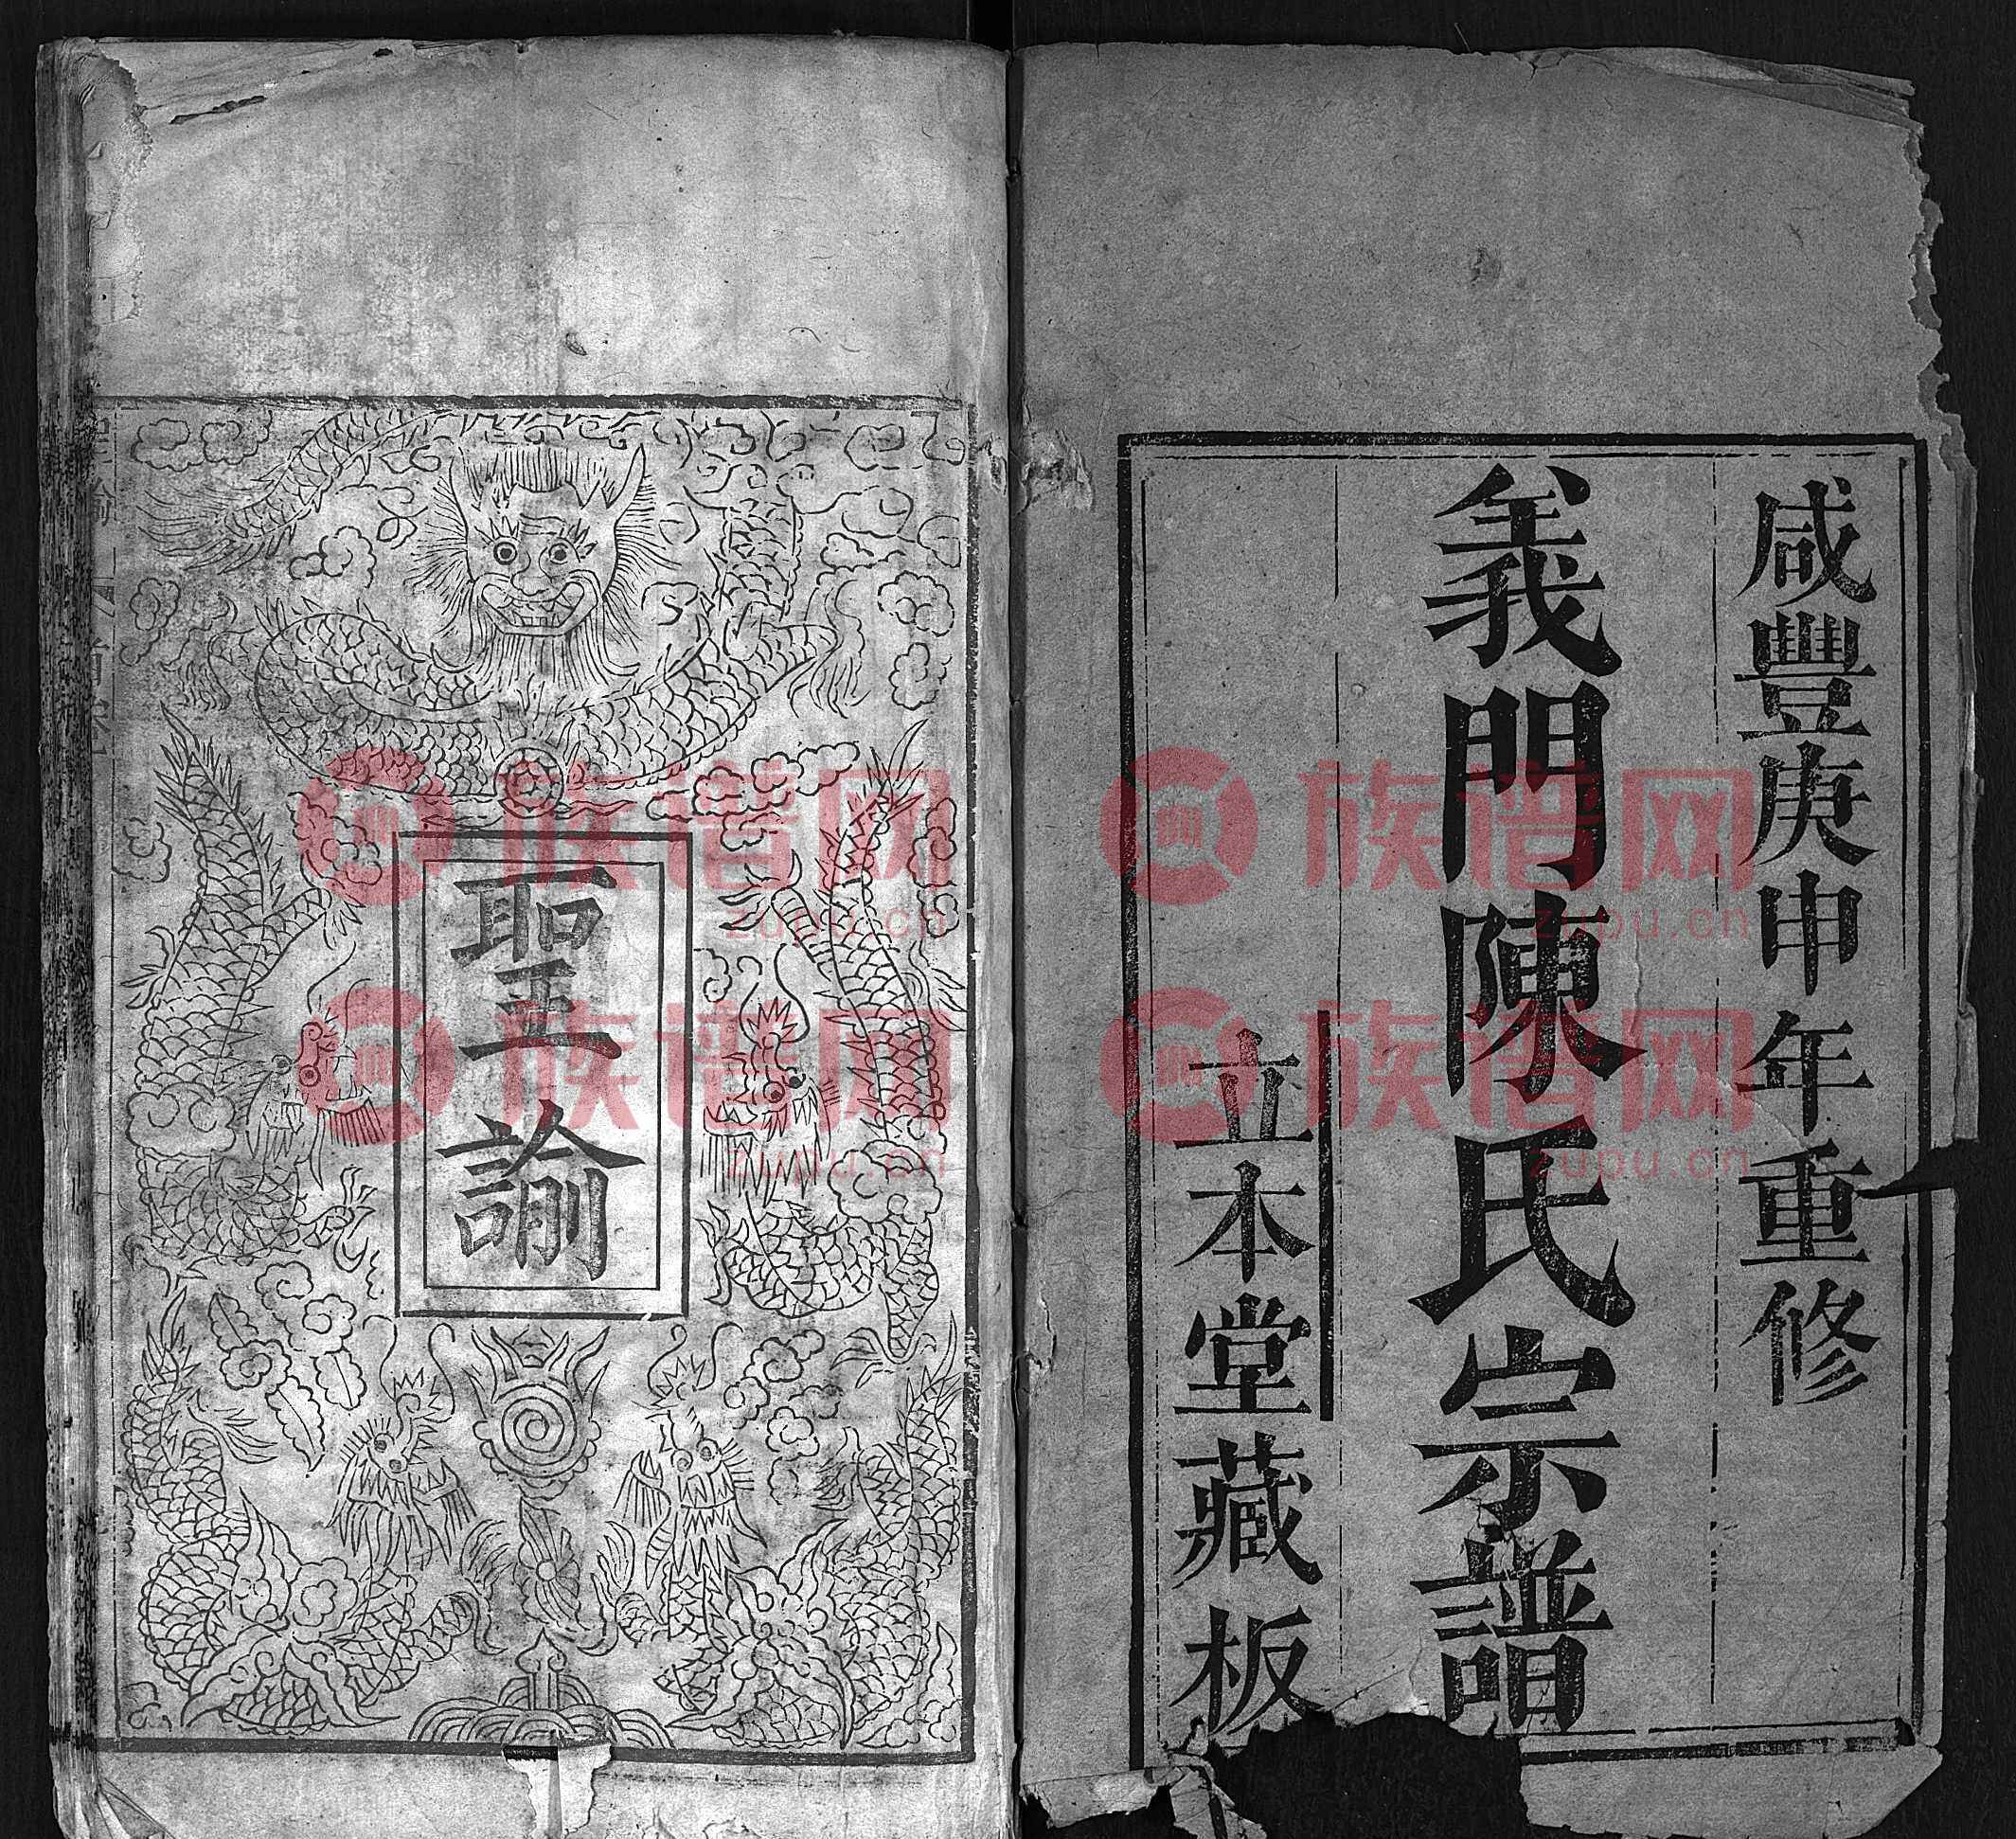 咸豐庚申年重修
義門陳氏宗譜
立本堂藏板
聖諭
族谱网 族谱网
zupu.cn zupu.cn
族谱网 族谱网
zupu.cn zupu.cn